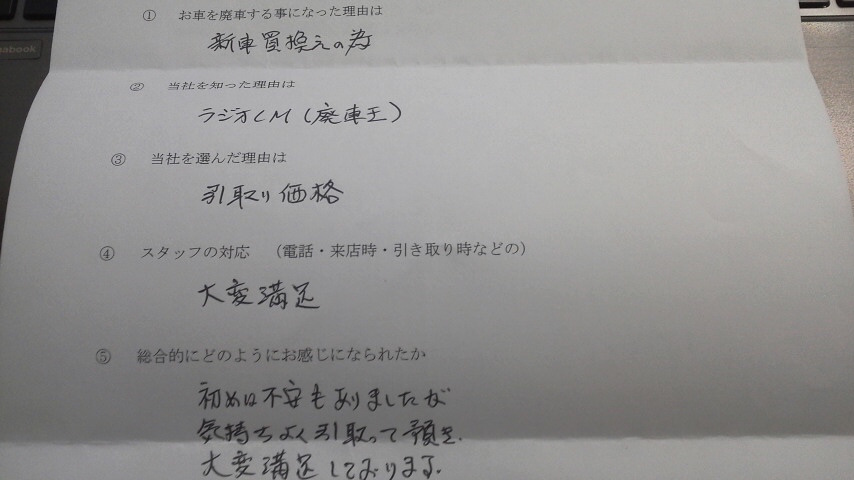 nabook
① お車を廃車する事になった理由は
新車買換えの為
② 当社を知った理由は
ラジオCM(廃車王)
③ 当社を選んだ理由は
引取り価格
④ スタッフの対応 (電話・来店時・引き取り時などの)
大変満足
⑤ 総合的にどのようにお感じになられたか
初めは不安もありましたが
気持ちよく引取って頂き、
大変満足しております。